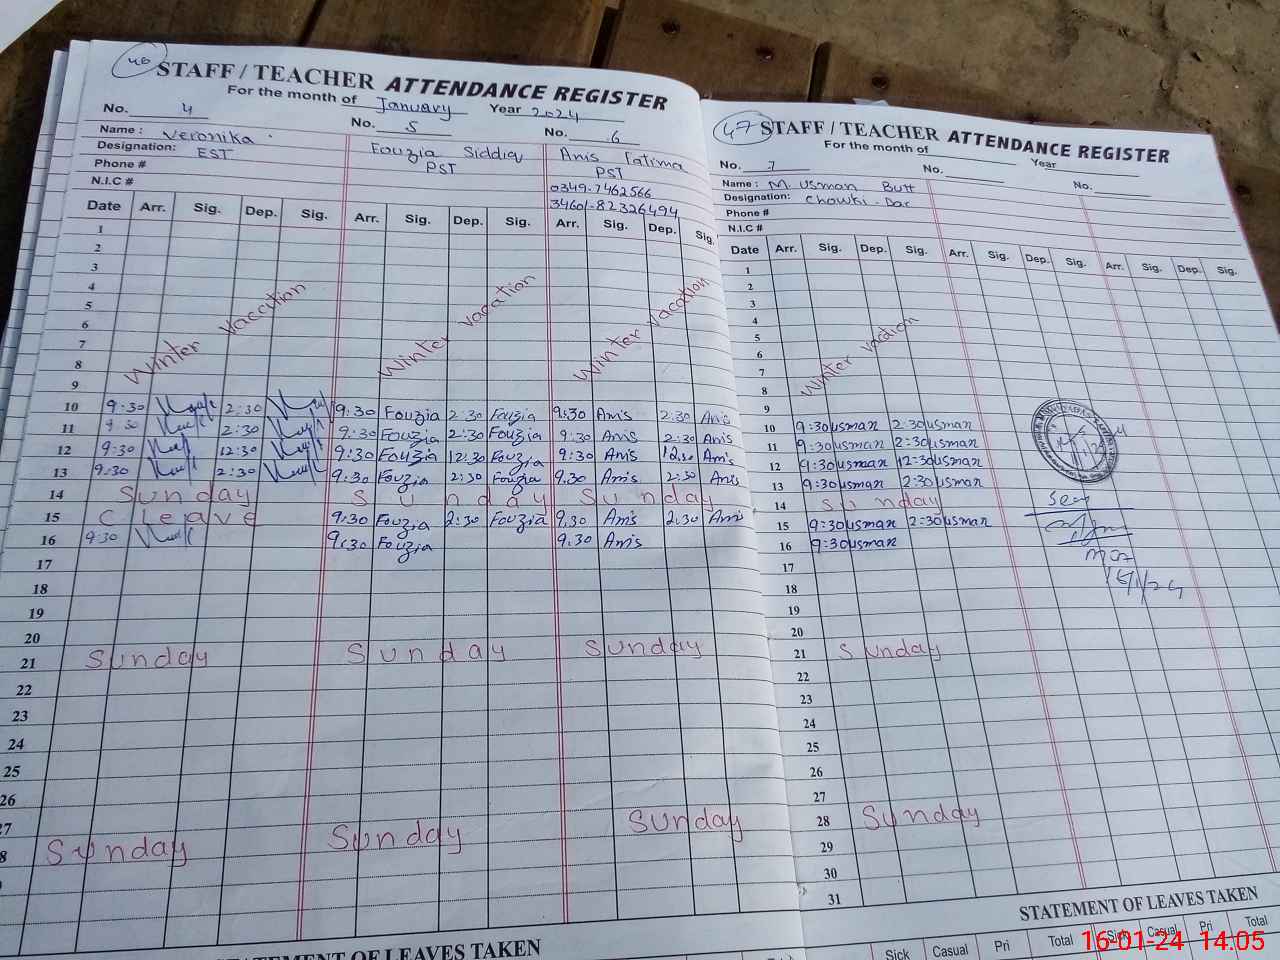 46
STAFF / TEACHER ATTENDANCE REGISTER
For the month of January Year 2024
No. 4 No. 5 No. 6
Name : Veronika. Fouzia Siddiq Anis Fatima
Designation: EST PST PST
Phone # 0349-7462566
N.I.C # 34601-82326494
Date Arr. Sig. Dep. Sig. Arr. Sig. Dep. Sig. Arr. Sig. Dep. Sig.
1
2
3
4
5
6
7
8
Winter Vaccation Winter vacation Winter vacation
9
10 9:30 2:30 9:30 Fouzia 2:30 Fouzia 9:30 Anis 2:30 Anis
11 9:30 2:30 9:30 Fouzia 2:30 Fouzia 9:30 Anis 2:30 Anis
12 9:30 12:30 9:30 Fouzia 12:30 Fouzia 9:30 Anis 12:30 Anis
13 9:30 2:30 9:30 Fouzia 2:30 Fouzia 9:30 Anis 2:30 Anis
14 Sunday Sunday Sunday
15 C leave 9:30 Fouzia 2:30 Fouzia 9:30 Anis 2:30 Anis
16 9:30 9:30 Fouzia 9:30 Anis
17
18
19
20
21 Sunday Sunday Sunday
22
23
24
25
26
27
8 Sunday Sunday Sunday
STATEMENT OF LEAVES TAKEN
47
STAFF / TEACHER ATTENDANCE REGISTER
For the month of Year
No. 7 No. No.
Name : M. Usman Butt
Designation: Chowki-Dar
Phone #
N.I.C #
Date Arr. Sig. Dep. Sig. Arr. Sig. Dep. Sig. Arr. Sig. Dep. Sig.
1
2
3
4
5
6
7
8
Winter vacation
9
10 9:30 usman 2:30 usman
11 9:30 usman 2:30 usman
12 9:30 usman 12:30 usman
13 9:30 usman 2:30 usman
14 Sunday
15 9:30 usman 2:30 usman
16 9:30 usman
17
18
19
20
21 Sunday
22
23
24
25
26
27
28 Sunday
29
30
31
Seen
16/1/24
STATEMENT OF LEAVES TAKEN
Sick Casual Pri Total Sick Casual Pri Total
16-01-24 14:05